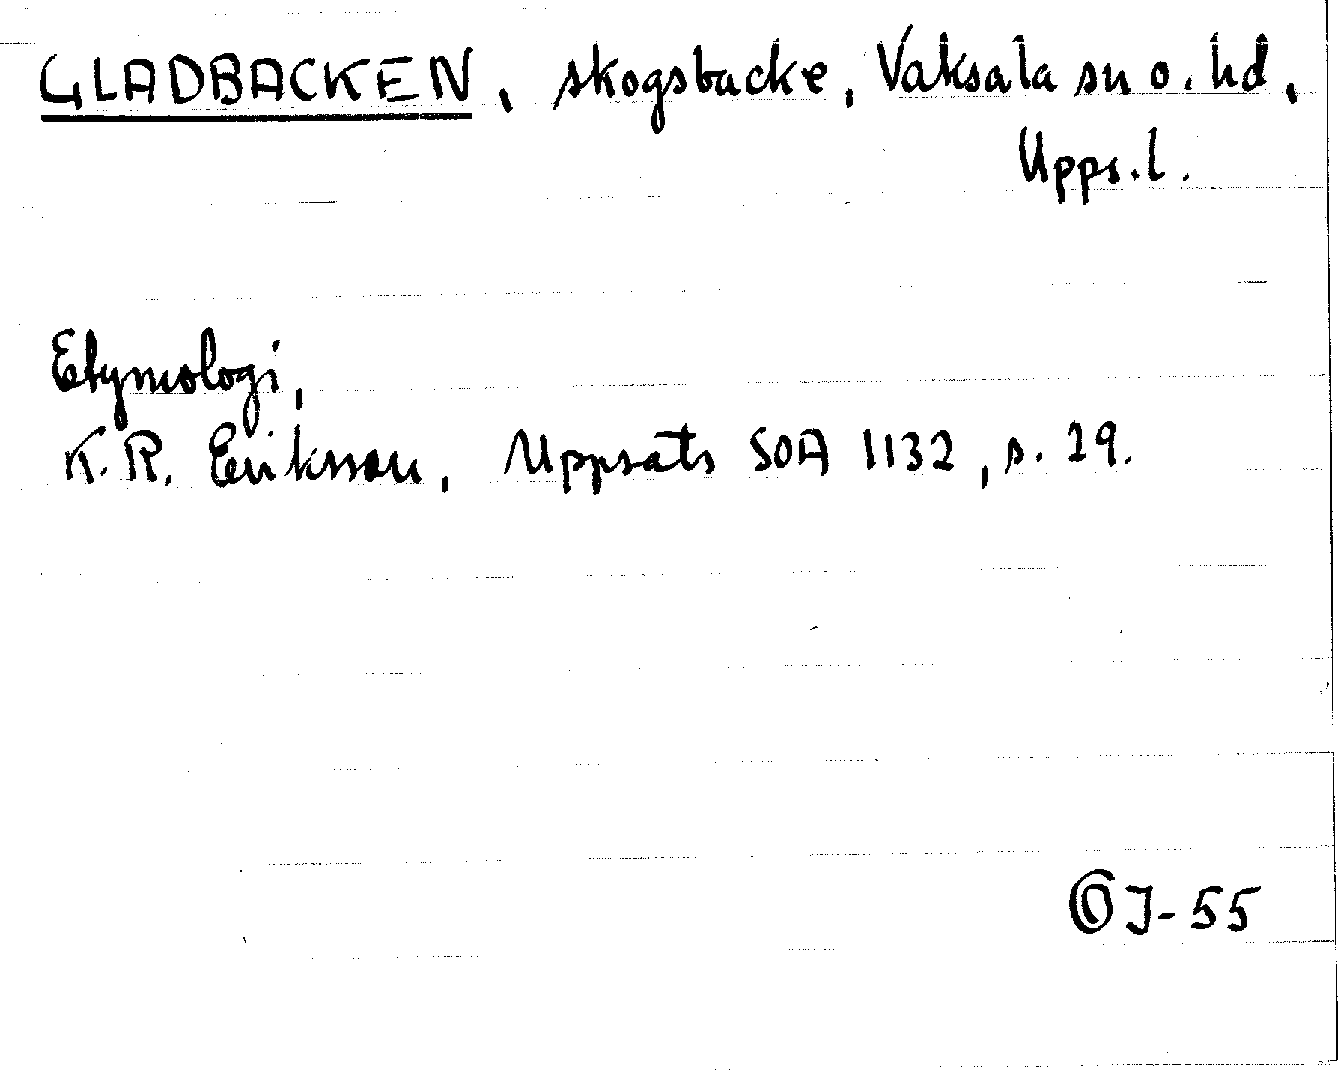 GLADBACKEN, skogsbacke, Vaksala sn o. hd,
Upps.l.
Etymologi,
K.R. Eriksson, Uppsats SOA 1132, s. 29.
OJ-55